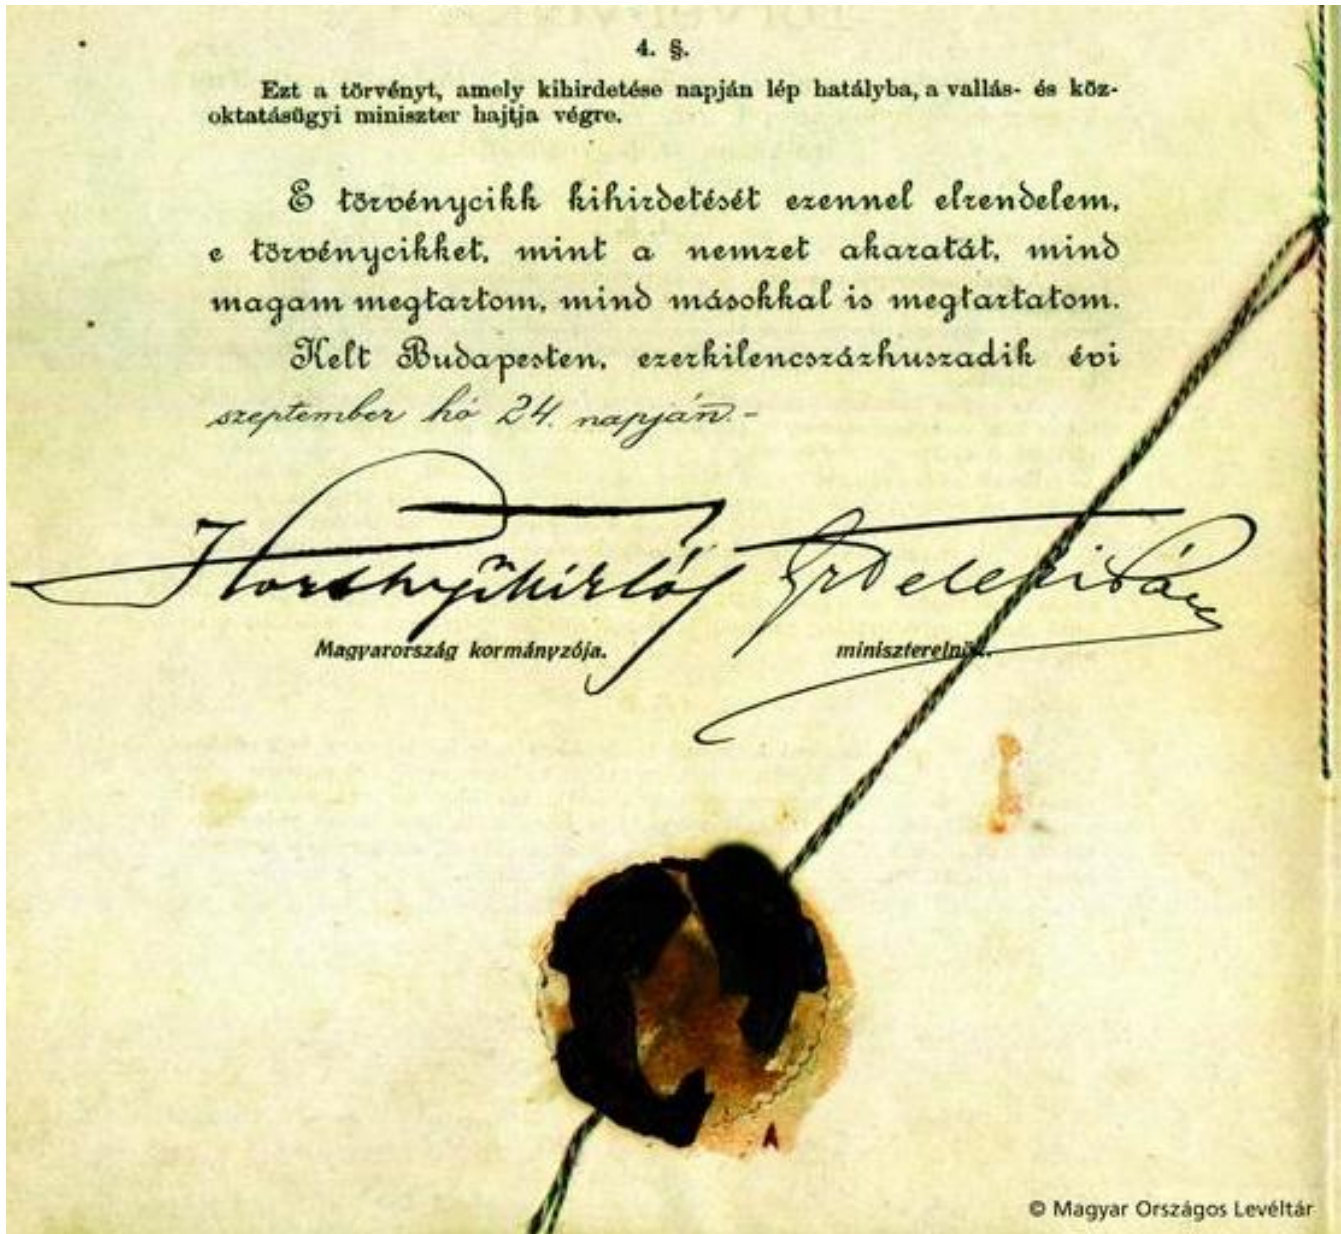 4. §.
Ezt a törvényt, amely kihirdetése napján lép hatályba, a vallás- és köz-
oktatásügyi miniszter hajtja végre.
E törvénycikk kihirdetését ezennel elrendelem,
e törvénycikket, mint a nemzet akaratát, mind
magam megtartom, mind másokkal is megtartatom.
Kelt Budapesten, ezerkilencszázhuszadik évi
szeptember hó 24. napján.-
Horthy Miklós
Magyarország kormányzója.
miniszterelnök.
A
© Magyar Országos Levéltár